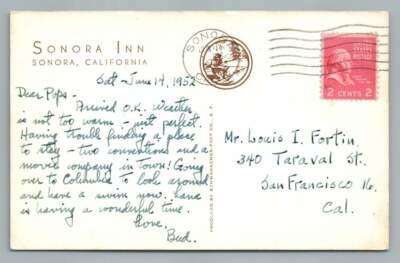 SONORA INN
SONORA, CALIFORNIA
Sat - June 14, 1952
Dear Pops -
Arrived O.K. Weather
is not too warm - just perfect.
Having trouble finding a place
to stay - two conventions and a
movie company in town! Going
over to Columbia to look around
and have a swim now. Hans
is having a wonderful time.
Love,
Bud.
SONORA
2 CENTS 2
Mr. Louis I. Fortin,
340 Taraval St.
San Francisco 16.
Cal.